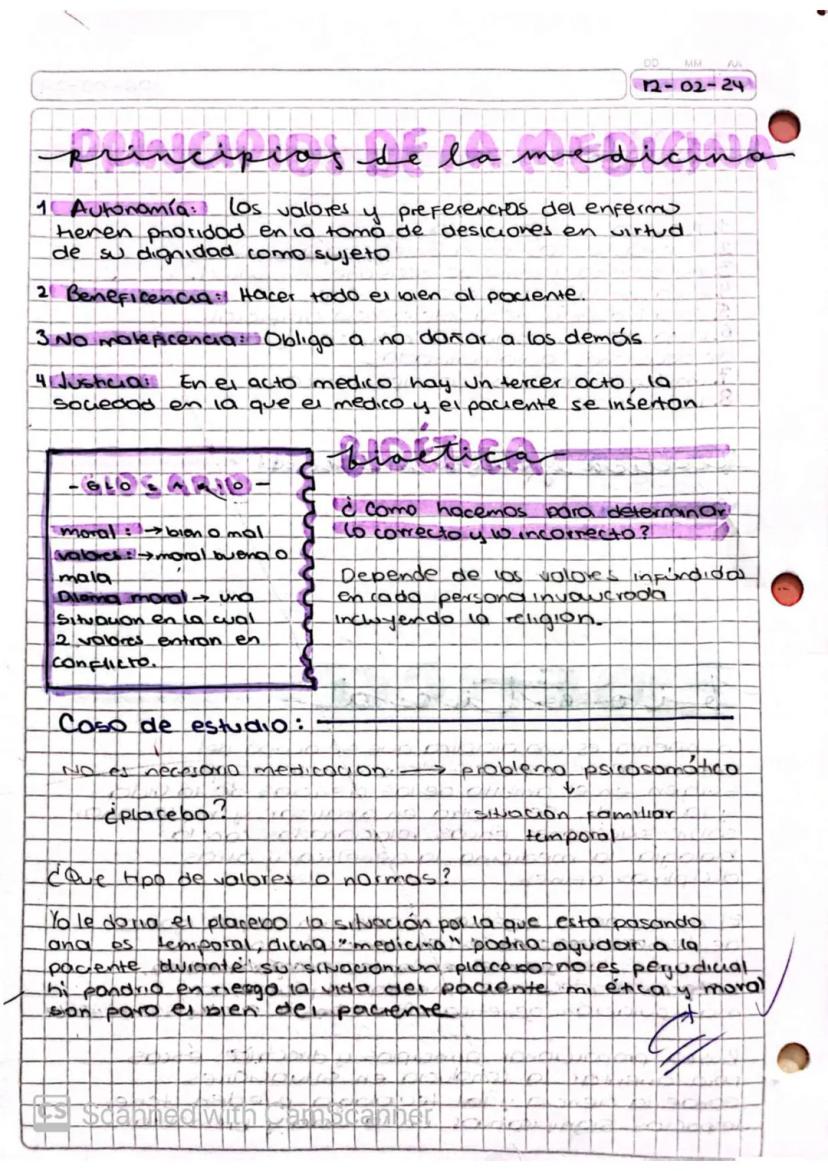 DD MM AA
12-02-24
PRINCIPIOS DE LA MEDICINA
principios de la medicina
1 Autonomía: Los valores y preferencias del enfermo
tienen prioridad en la toma de desiciones en virtud
de su dignidad como sujeto
2 Beneficencia: Hacer todo el bien al paciente.
3 No maleficencia: Obliga a no dañar a los demás
4 Justicia: En el acto medico hay un tercer acto, la
sociedad en la que el medico y el paciente se insertan
-GLOSARIO-
moral: → bien o mal
valores: → moral buena o
mala
Dilema moral → una
situacion en la cual
2 valores entran en
conflicto.
BIOÉTICA
bioética
¿Como hacemos para determinar
lo correcto y lo incorrecto?
Depende de los valores infundidos
en cada persona involucrada
incluyendo la religion.
Caso de estudio:
No es necesario medicacion → problema psicosomático
↓
¿placebo? situación familiar
temporal
¿Que tipo de valores o normas?
Yo le daria el placebo la situación por la que esta pasando
ana es temporal, dicha "medicina" podria ayudar a la
paciente durante su situacion un placebo no es perjudicial
ni pondria en riesgo la vida del paciente mi ética y moral
son para el bien del paciente
CS Scanned with CamScanner